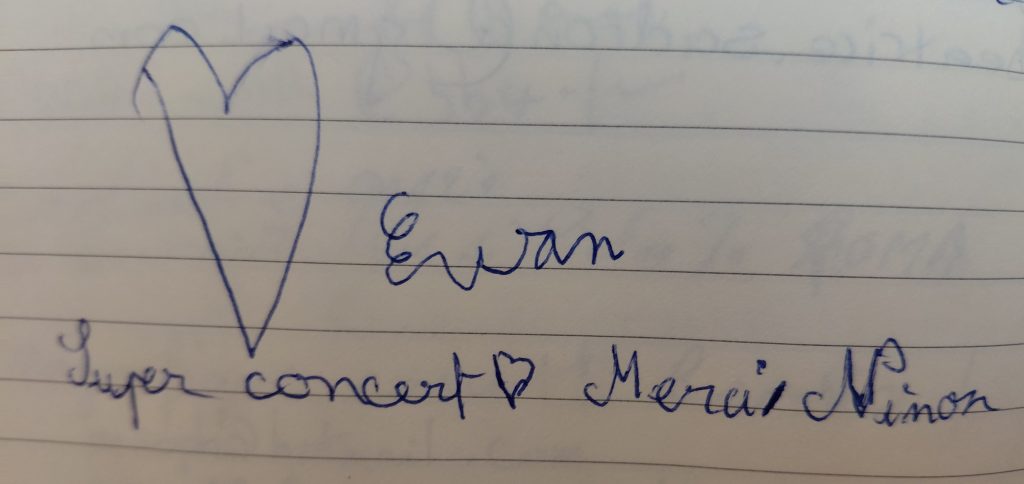 Ewan
Super concert♡ Merci, Ninon